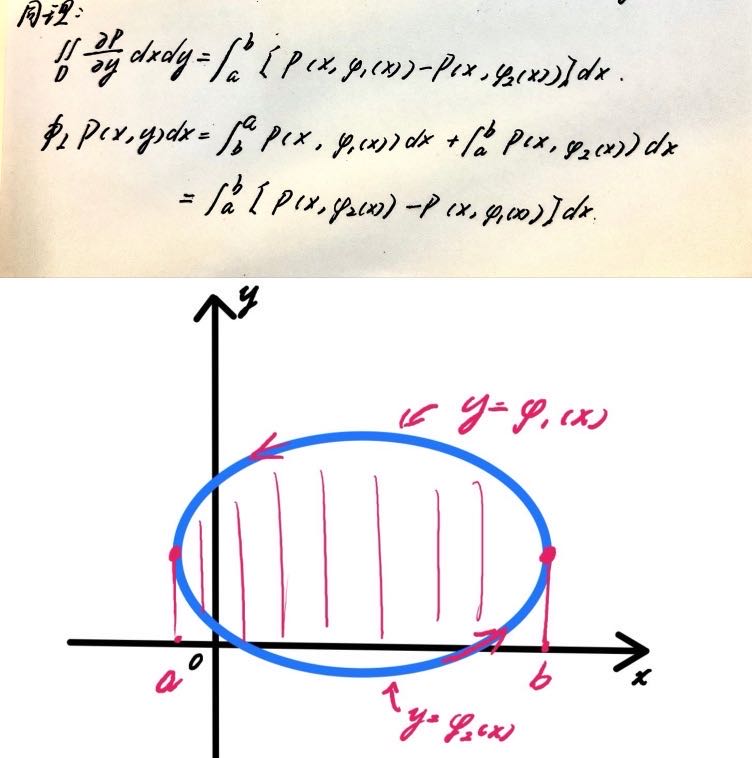 同理:
∬_D ∂P/∂y dxdy = ∫_a^b [P(x, φ₁(x)) - P(x, φ₂(x))] dx.
∮_L P(x, y)dx = ∫_b^a P(x, φ₁(x)) dx + ∫_a^b P(x, φ₂(x)) dx
= ∫_a^b [P(x, φ₂(x)) - P(x, φ₁(x))] dx.
y
y = φ₁(x)
a
0
b
x
y = φ₂(x)